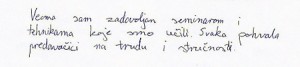 Veoma sam zadovoljan seminarom i
tehnikama koje smo učili. Svaka pohvala
predavačici na trudu i stručnosti.